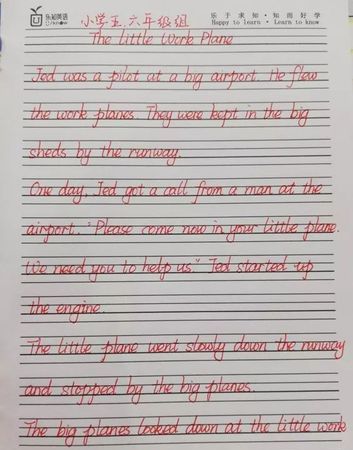 乐知英语
小学五.六年级组
乐于求知·知而好学
Happy to learn · Learn to know
The Little Work Plane
Jed was a pilot at a big airport. He flew
the work planes. They were kept in the big
sheds by the runway.
One day, Jed got a call from a man at the
airport. "Please come now in your little plane.
We need you to help us." Jed started up
the engine.
The little plane went slowly down the runway
and stopped by the big planes.
The big planes looked down at the little work